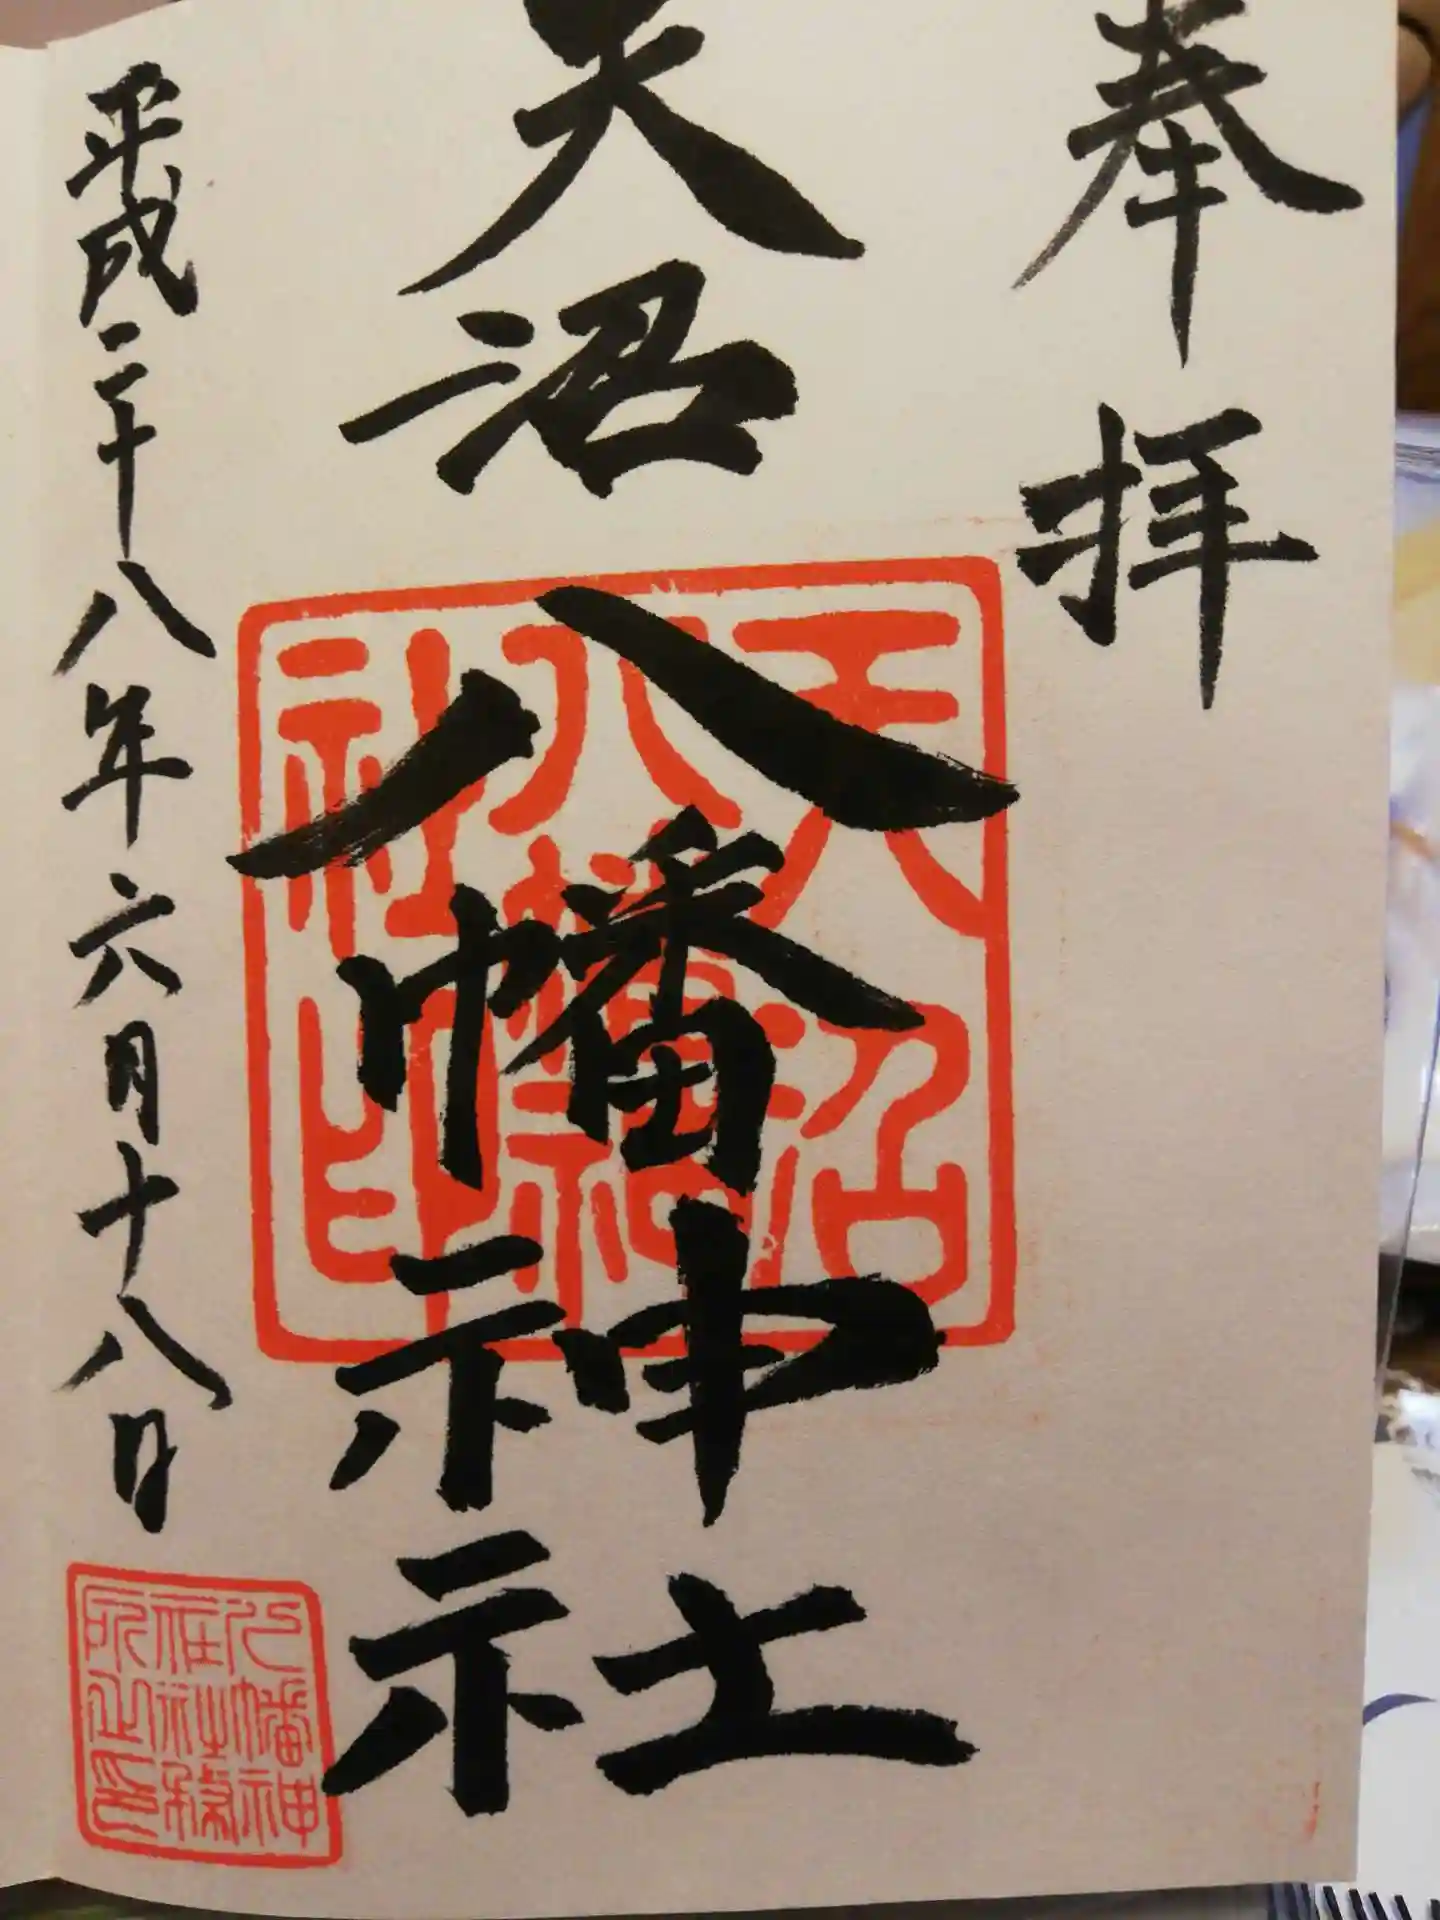 奉拝
天沼八幡神社
天沼
八幡神
社印
平成二十八年六月十八日
八幡神